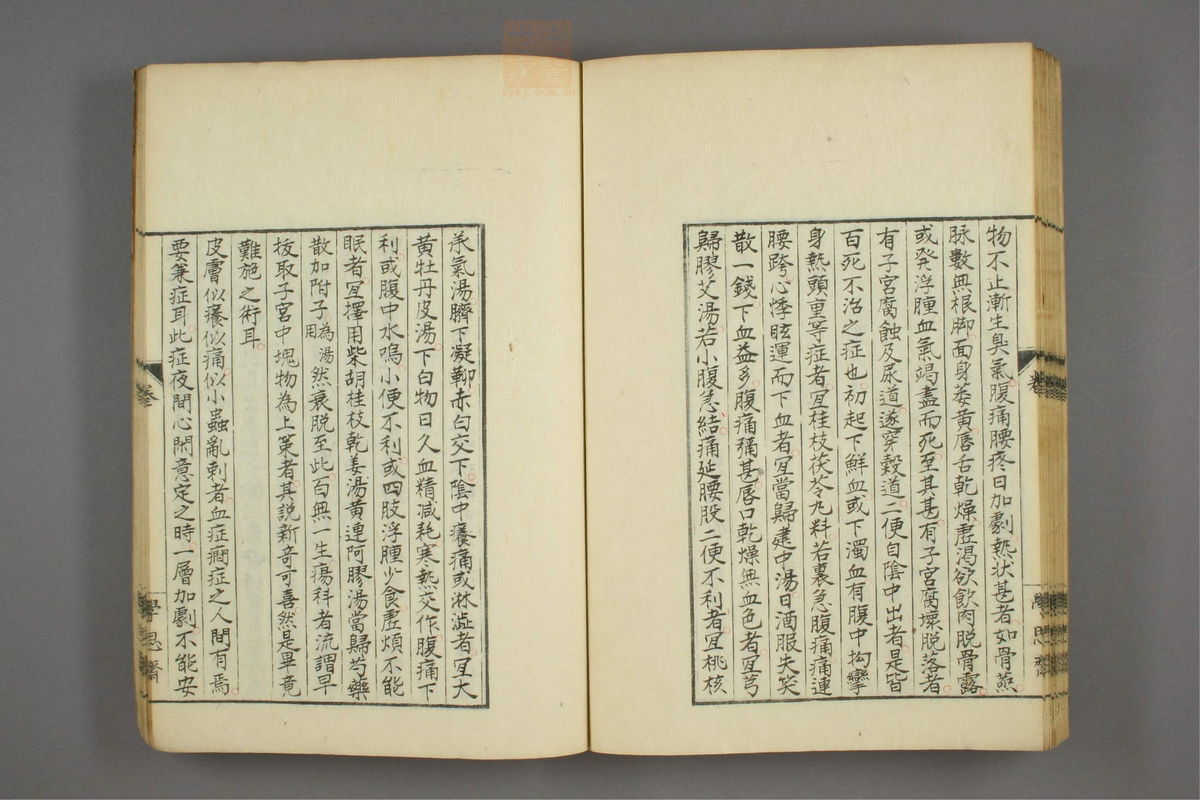 物不止漸生臭氣腹痛腰疼日加劇熱状甚者如骨蒸
脉數無根脚面身萎黄唇舌乾燥虚渇欲飲肉脱骨露
或発浮腫血氣竭盡而死至其甚有子宮腐壊脱落者
有子宮腐蝕及尿道遂穿穀道二便自陰中出者是皆
百死不治之症也初起下鮮血或下濁血有腹中拘攣
身熱頭重等症者冝桂枝茯苓丸料若裏急腹痛痛連
腰跨心悸眩運而下血者冝當歸建中湯日酒服失笑
散一錢下血益多腹痛彌甚唇口乾燥無血色者冝芎
歸膠艾湯若小腹急結痛延腰股二便不利者冝桃核
承氣湯臍下凝鞕赤白交下陰中癢痛或淋澁者冝大
黄牡丹皮湯下白物日久血精減耗寒熱交作腹痛下
利或腹中水鳴小便不利或四肢浮腫少食虚煩不能
眠者冝擇用柴胡桂枝乾姜湯黄連阿膠湯當歸芍藥
散加附子為湯用然衰脱至此百無一生瘍科者流謂早
抜取子宮中塊物為上策者其説新奇可喜然是畢竟
難施之術耳
皮膚似癢似痛似小蟲亂刺者血症癇症之人間有焉
要兼症耳此症夜間心閑意定之時一層加劇不能安
巻
學思齋